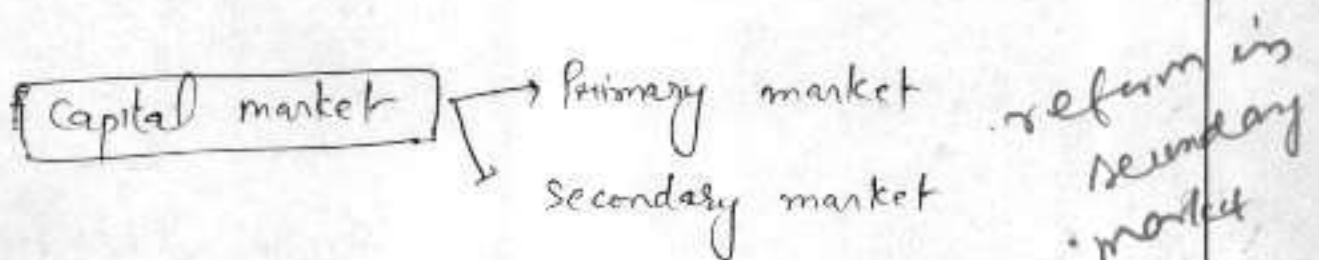 Capital market
Primary market
secondary market
reform in
secundary
market